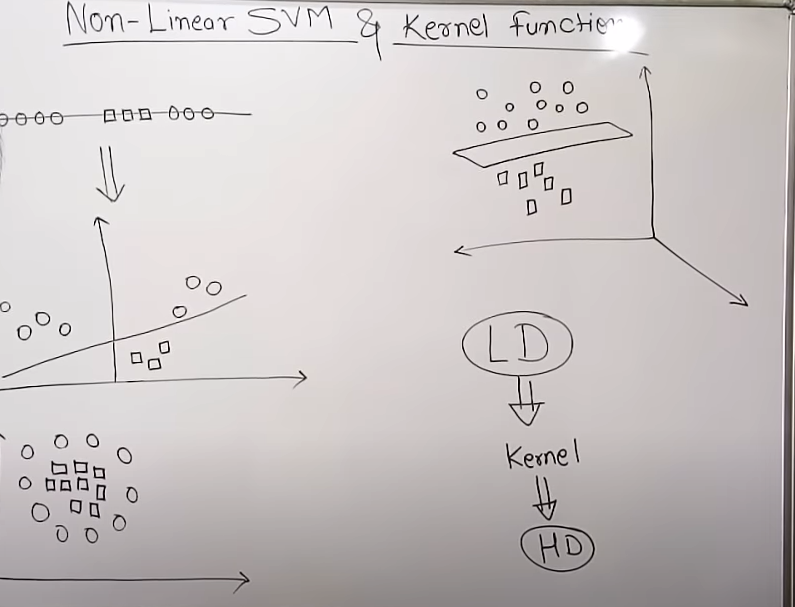 Non-Linear SVM & Kernel Function
LD
Kernel
HD